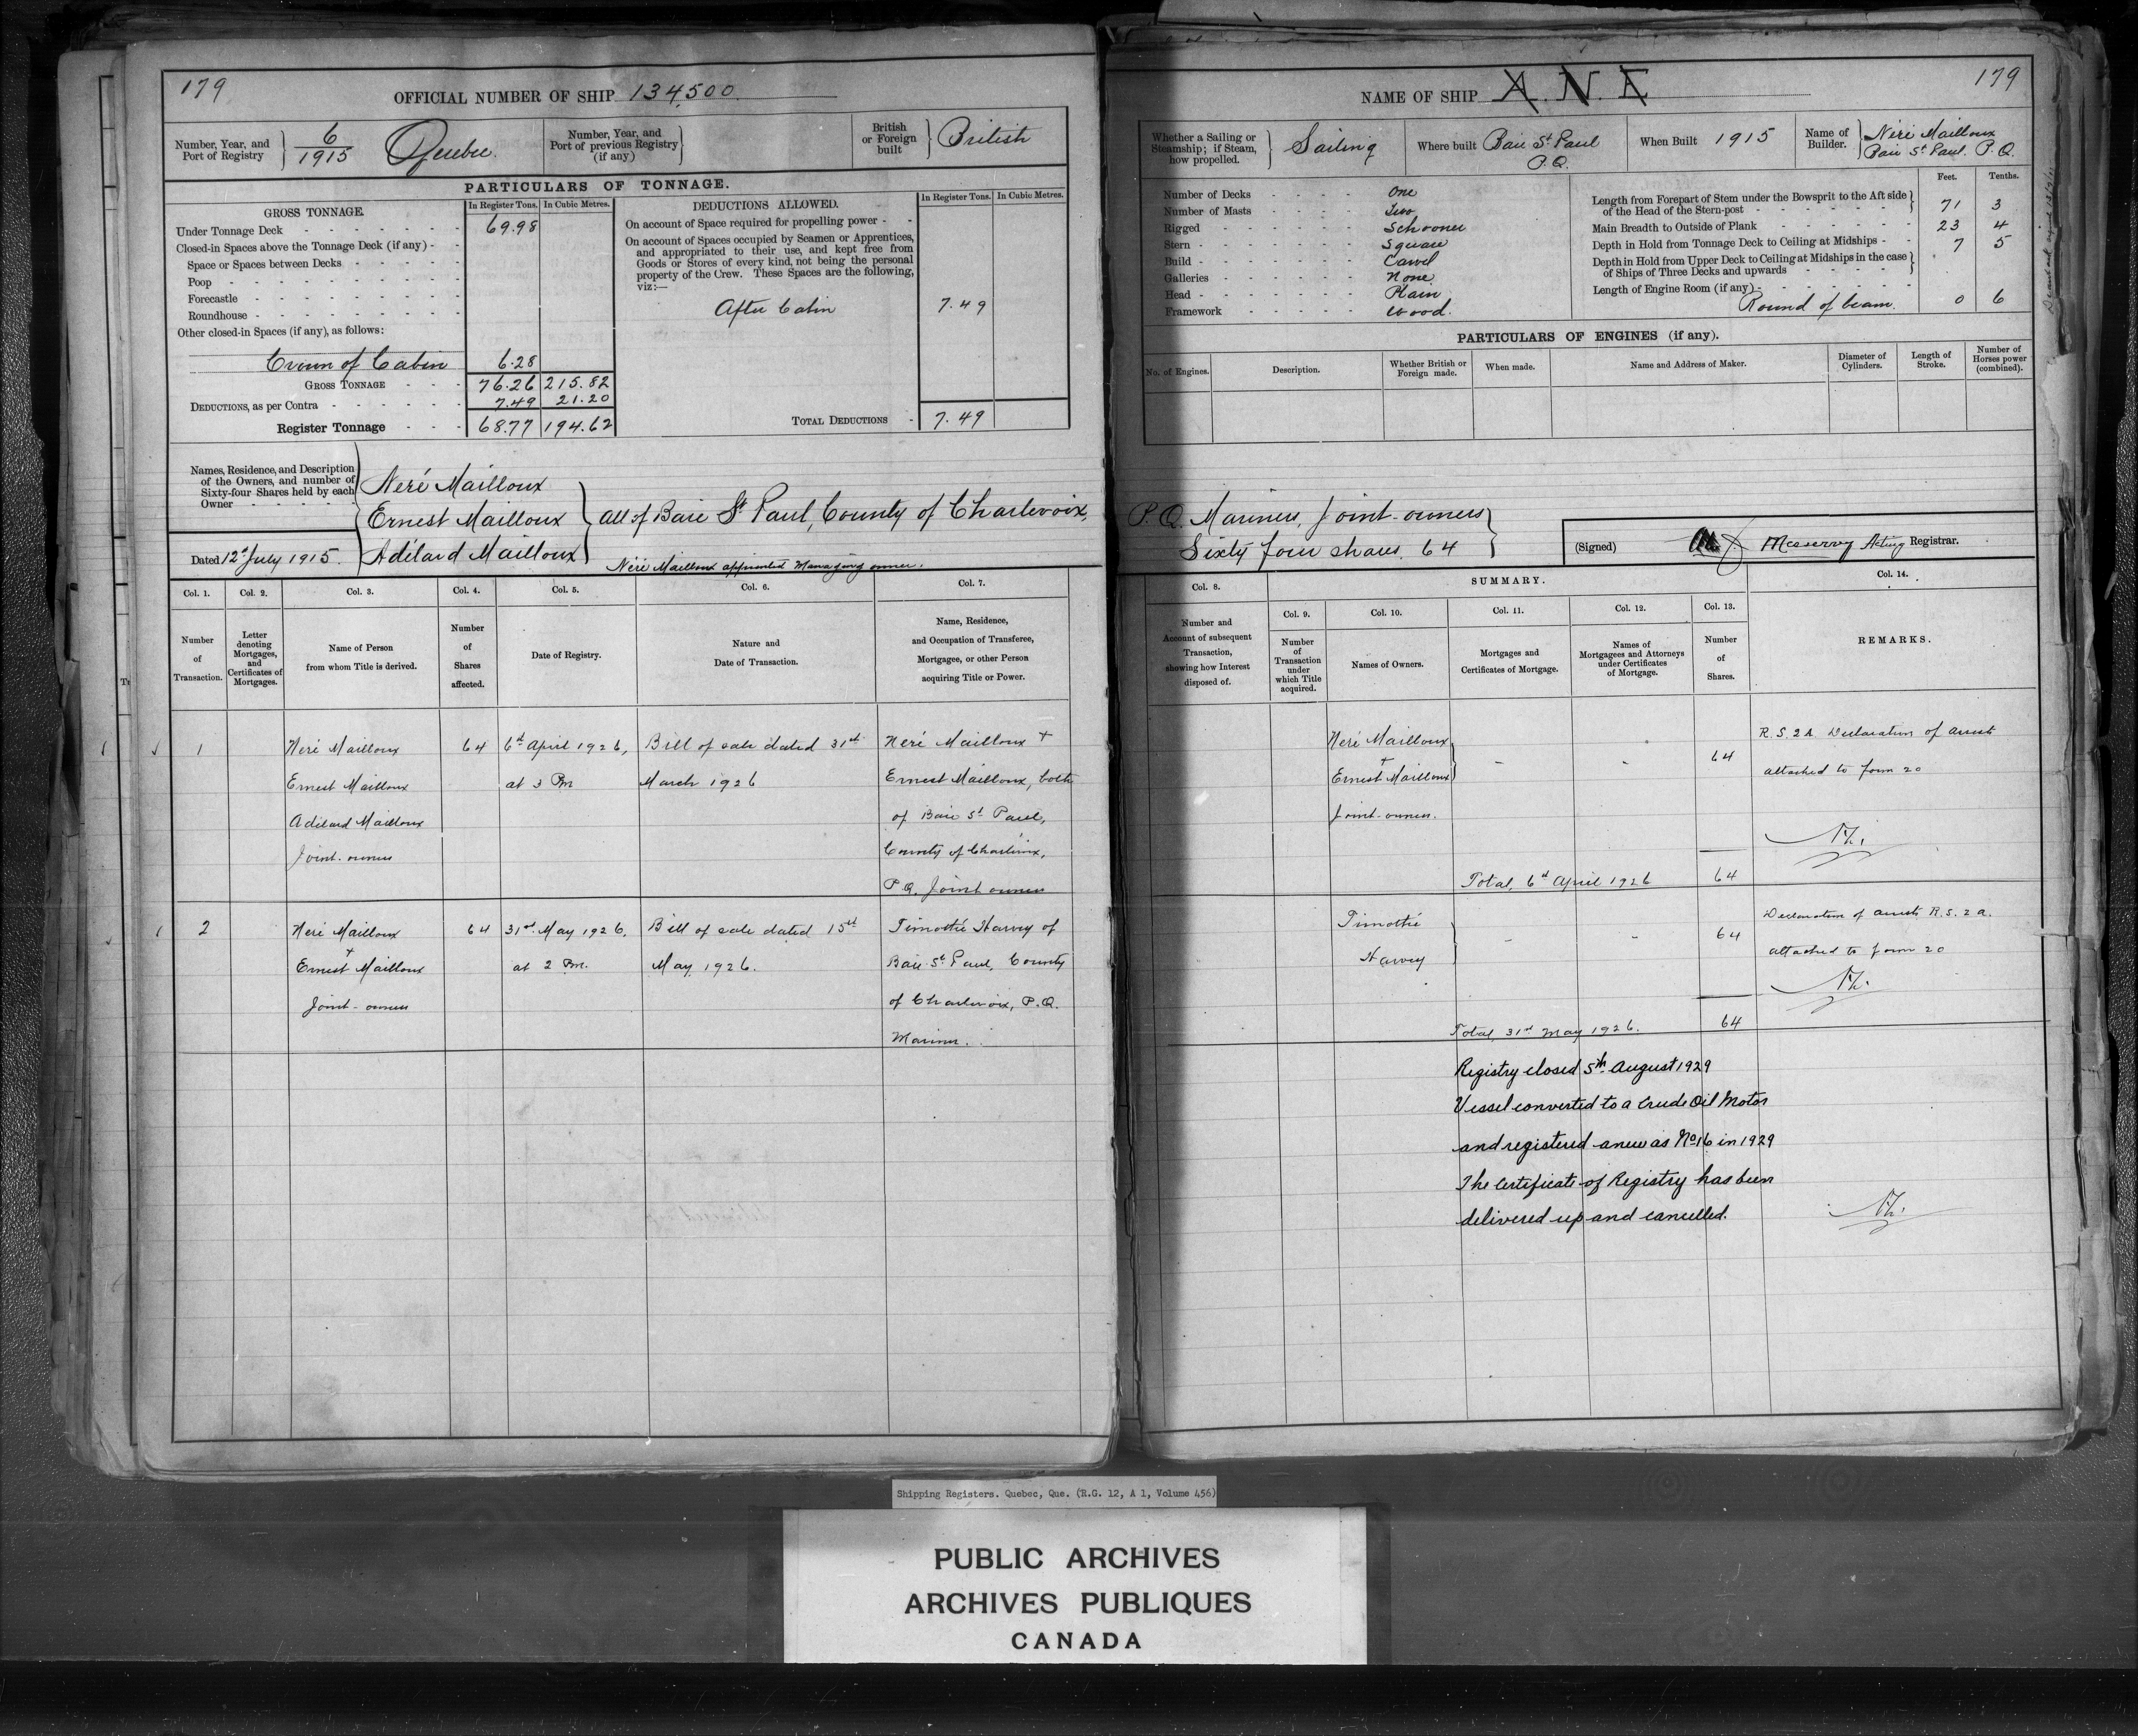 179
OFFICIAL NUMBER OF SHIP 134,500
Number, Year, and Port of Registry } 6/1915 Quebec
Number, Year, and Port of previous Registry (if any) }
British or Foreign built } British
PARTICULARS OF TONNAGE.
GROSS TONNAGE. In Register Tons. In Cubic Metres.
Under Tonnage Deck 69.98
Closed-in Spaces above the Tonnage Deck (if any)
Space or Spaces between Decks
Poop
Forecastle
Roundhouse
Other closed-in Spaces (if any), as follows:
Crown of Cabin 6.28
GROSS TONNAGE 76.26 215.82
DEDUCTIONS, as per Contra 7.49 21.20
Register Tonnage 68.77 194.62
DEDUCTIONS ALLOWED. In Register Tons. In Cubic Metres.
On account of Space required for propelling power
On account of Spaces occupied by Seamen or Apprentices,
and appropriated to their use, and kept free from
Goods or Stores of every kind, not being the personal
property of the Crew. These Spaces are the following,
viz:—
After Cabin 7.49
TOTAL DEDUCTIONS 7.49
Names, Residence, and Description
of the Owners, and number of
Sixty-four Shares held by each
Owner
Neré Mailloux
Ernest Mailloux } all of Baie St Paul, County of Charlevoix,
Adélard Mailloux
Neré Mailloux appointed Managing owner.
Dated 12th July 1915.
Col. 1. Col. 2. Col. 3. Col. 4. Col. 5. Col. 6. Col. 7.
Number of Transaction.
Letter denoting Mortgages, and Certificates of Mortgages.
Name of Person from whom Title is derived.
Number of Shares affected.
Date of Registry.
Nature and Date of Transaction.
Name, Residence, and Occupation of Transferee, Mortgagee, or other Person acquiring Title or Power.
1 Neré Mailloux 64 6th April 1926, Bill of sale dated 31st Neré Mailloux +
Ernest Mailloux at 3 Pm March 1926 Ernest Mailloux, both
Adélard Mailloux of Baie St Paul,
Joint-owners County of Charlevoix,
P.Q. Joint owners
2 Neré Mailloux 64 31st May 1926, Bill of sale dated 15th Timothé Harvey of
+
Ernest Mailloux at 2 Pm. May 1926. Baie St Paul, County
Joint-owners of Charlevoix, P.Q.
Mariner.
179
NAME OF SHIP A. N. E
Whether a Sailing or Steamship; if Steam, how propelled. } Sailing
Where built Baie St Paul P.Q.
When Built 1915
Name of Builder. } Néré Mailloux Baie St Paul. P.Q.
Number of Decks One
Number of Masts Two
Rigged Schooner
Stern Square
Build Carvel
Galleries None
Head Plain
Framework Wood.
Feet. Tenths.
Length from Forepart of Stem under the Bowsprit to the Aft side
of the Head of the Stern-post 71 3
Main Breadth to Outside of Plank 23 4
Depth in Hold from Tonnage Deck to Ceiling at Midships 7 5
Depth in Hold from Upper Deck to Ceiling at Midships in the case
of Ships of Three Decks and upwards
Length of Engine Room (if any)
Round of beam. 0 6
PARTICULARS OF ENGINES (if any).
No. of Engines. Description. Whether British or Foreign made. When made. Name and Address of Maker. Diameter of Cylinders. Length of Stroke. Number of Horses power (combined).
P.Q. Mariners, Joint-owners
Sixty four shares. 64
(Signed) Meservey Acting Registrar.
Col. 8. SUMMARY. Col. 14.
Col. 9. Col. 10. Col. 11. Col. 12. Col. 13.
Number and Account of subsequent Transaction, showing how Interest disposed of.
Number of Transaction under which Title acquired.
Names of Owners.
Mortgages and Certificates of Mortgage.
Names of Mortgagees and Attorneys under Certificates of Mortgage.
Number of Shares.
REMARKS.
Neré Mailloux - - 64 R.S. 2A Declaration of
+
Ernest Mailloux attached to form 20
Joint-owners.
Total, 6th April 1926 64
Timothé - - 64 Declaration of R.S. 2 a.
Harvey attached to form 20
Total, 31st May 1926. 64
Registry closed 5th August 1929
Vessel converted to a Crude Oil Motor
and registered anew as No 16 in 1929
The Certificate of Registry has been
delivered up and cancelled.
Shipping Registers. Quebec, Que. (R.G. 12, A 1, Volume 456)
PUBLIC ARCHIVES
ARCHIVES PUBLIQUES
CANADA